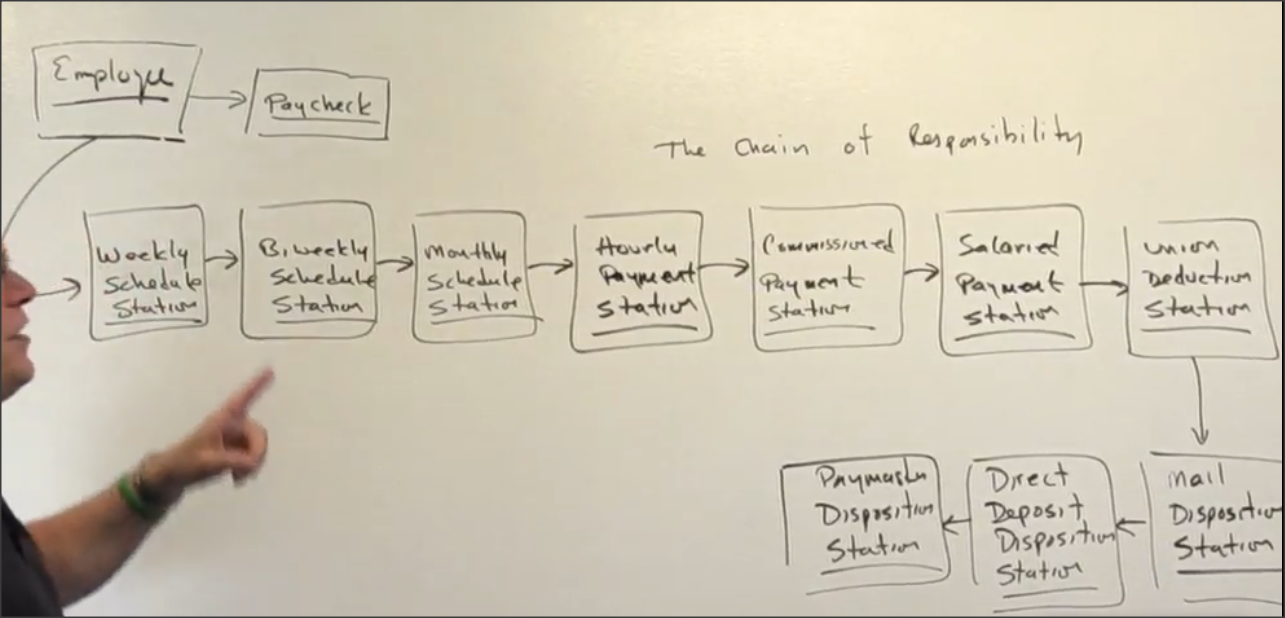 Employee
Paycheck
The Chain of Responsibility
Weekly
Schedule
Station
Biweekly
Schedule
Station
Monthly
Schedule
Station
Hourly
Payment
Station
Commissioned
Payment
Station
Salaried
Payment
Station
Union
Deduction
Station
Mail
Disposition
Station
Direct
Deposit
Disposition
Station
Paymaster
Disposition
Station